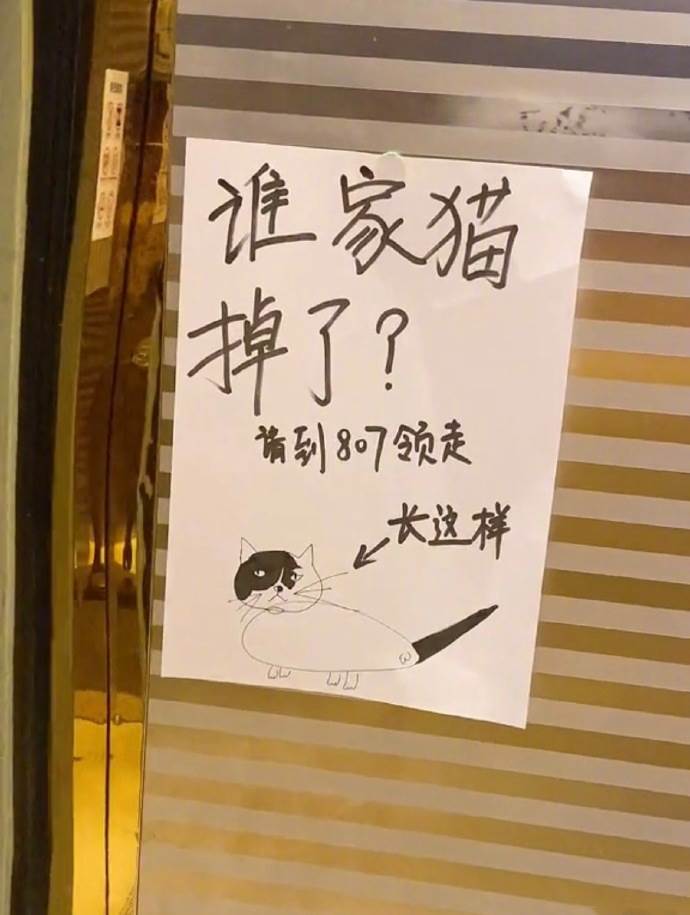 谁家猫
掉了?
请到807领走
长这样